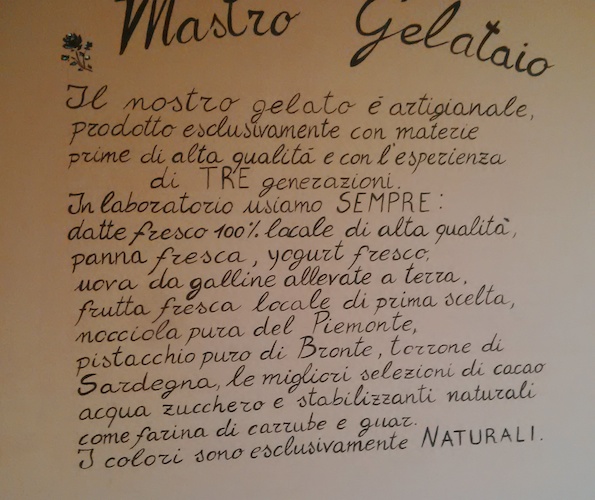 Mastro Gelataio
Il nostro gelato é artigianale,
prodotto esclusivamente con materie
prime di alta qualitá e con l'esperienza
di TRE generazioni.
In laboratorio usiamo SEMPRE:
datte fresco 100% locale di alta qualità,
panna fresca, yogurt fresco,
uova da galline allevate a terra,
frutta fresca locale di prima scelta,
nocciola pura del Piemonte,
pistacchio puro di Bronte, torrone di
Sardegna, le migliori selezioni di cacao
acqua zucchero e stabilizzanti naturali
come farina di carrube e guar.
I colori sono esclusivamente NATURALI.